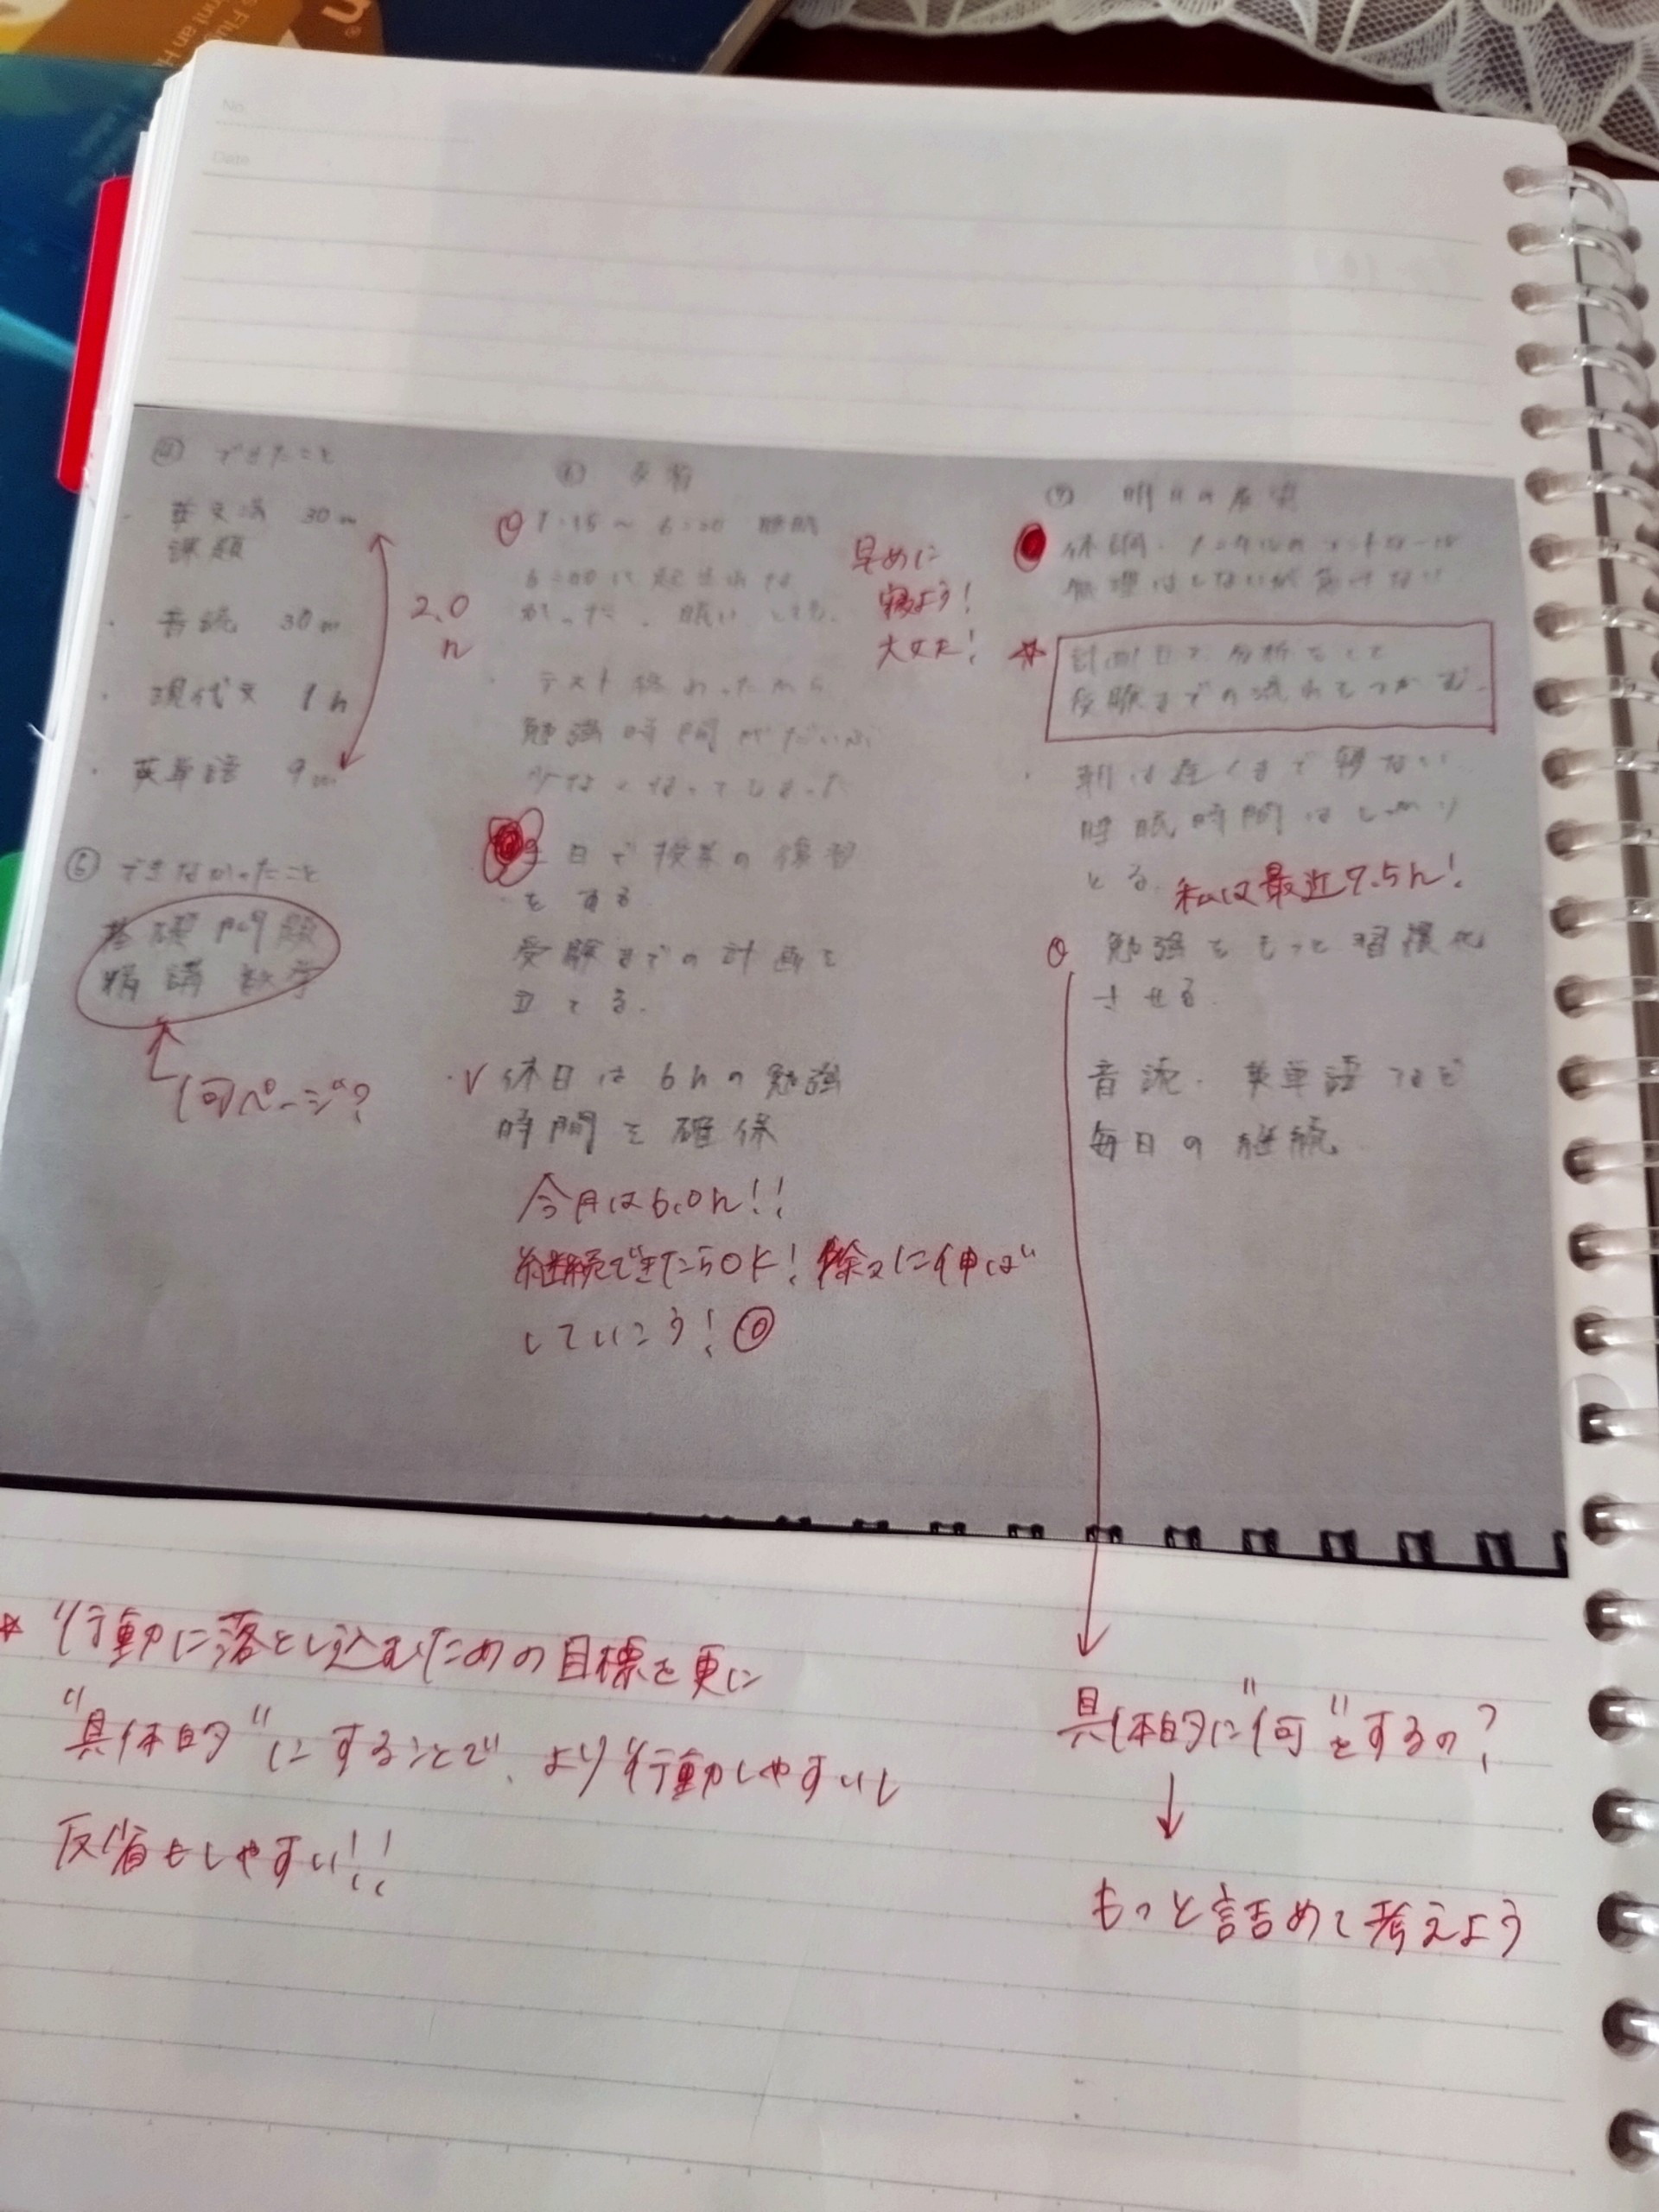 No.
Date
④ できたこと
・英文法 30m
課題
・音読 30m
・現代文 1h
・英単語 9m
2.0
h
⑤ できなかったこと
基礎問題
精講 数学
何ページ?
⑥ 反省
1:15 ~ 6:00 睡眠
6:00に起きれな
かった。眠い
・テスト終わったから
勉強時間がだいぶ
少なくなってしまった
早めに
寝よう!
大丈夫!
日で授業の復習
をする
受験までの計画を
立てる.
・✓休日は6hの勉強
時間を確保
今月は6.0h!!
継続できたらOK! 徐々に伸ば
していこう!
⑦ 明日の
無理はしないが
☆ 計画立て、分析をして
受験までの流れをつかむ.
・朝は遅くまで寝ない.
睡眠時間はしっかり
とる. 私は最近7.5h!
勉強をもっと習慣化
させる.
音読・英単語など
毎日の継続.
☆ 行動に落とし込むための目標を更に
"具体的"にすることで、より行動しやすいし
反省もしやすい!!
具体的に"何"をするの?
↓
もっと詰めて考えよう